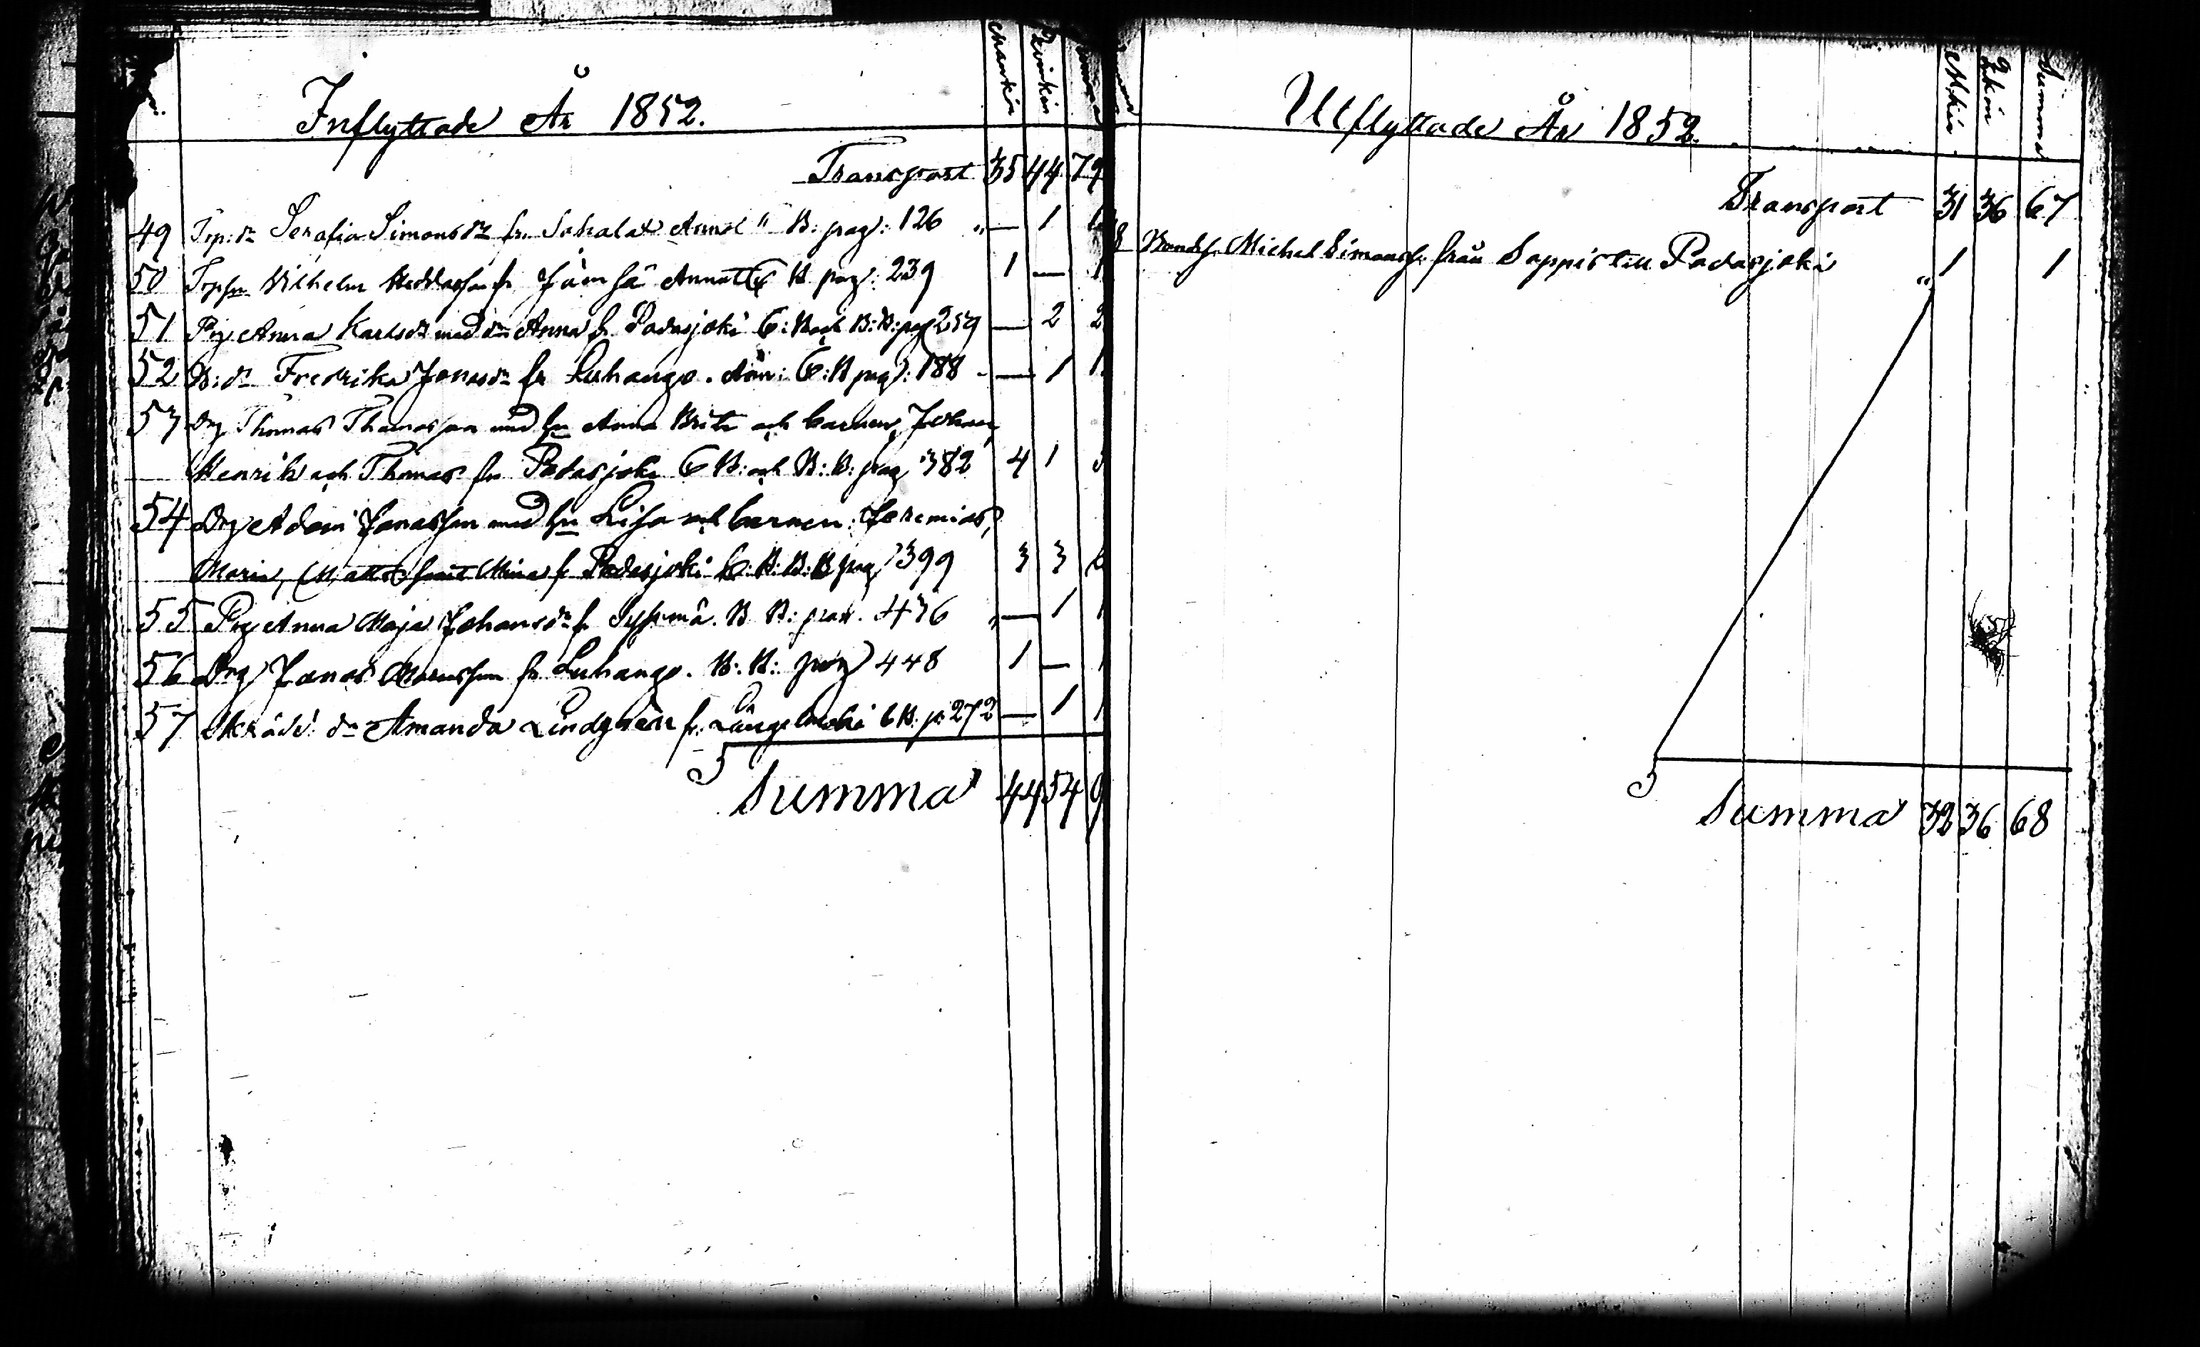 Mankön Qvinkön Summa
Inflyttade År 1852.
Transport 35 44 79
49 Trp: dr Serafia Simonsdr fr. Sahalax Annot " B: pag: 126 " — 1 1
50 Trpsn Vilhelm fr Jämsä Annott C B. pag: 239 1 — 1
51 Pig Anna Karlsdr med dr Anna fr Padasjoki C: B och B: B: pag 259 — 2 2
52 B: dr Fredrika Jonasdr fr Luhango. Ann: C: B pag: 188 — 1 1
53 Drg Thomas Thomasson med hu Anna Brita och barnen, Johan,
Henrik och Thomas fr Padasjoki C B: och B: B: pag 382 4 1 5
54 Drg Adam Jonasson med hu Lisa och barnen: Jeremias,
Maria, Matts samt Mina fr Padasjoki C: B: B: B pag 399 3 3 6
55 Pig Anna Maja Johansdr fr Sysmä. B B: pag. 436 " — 1 1
56 Drg Jonas fr Luhango. B: B: pag 448 1 — 1
57 Skräd: dr Amanda Lindgren fr. Längelmäki C B. p: 272 — 1 1
Summa 44 54 9
M.kön Q.kön Summa
Utflyttade År 1852.
Transport 31 36 67
8 Bondes. Michel Simonss. från Seppis till Padasjoki " 1 1
Summa 32 36 68